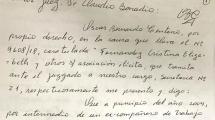 Sr. Juez: Dr Claudio Bonadio:
Oscar Bernardo Centeno, por
propio derecho, en la causa que lleva el Nº
9608/18, caratulada "Fernandez, Cristina Eliza-
beth y otros s/ asociación ilícita, que tramita
ante el juzgado a vuestro cargo, secretaria Nº
21, respectivamente me presento y digo:
Que a principio del año 2004,
por intermedio de un ex compañero de trabajo